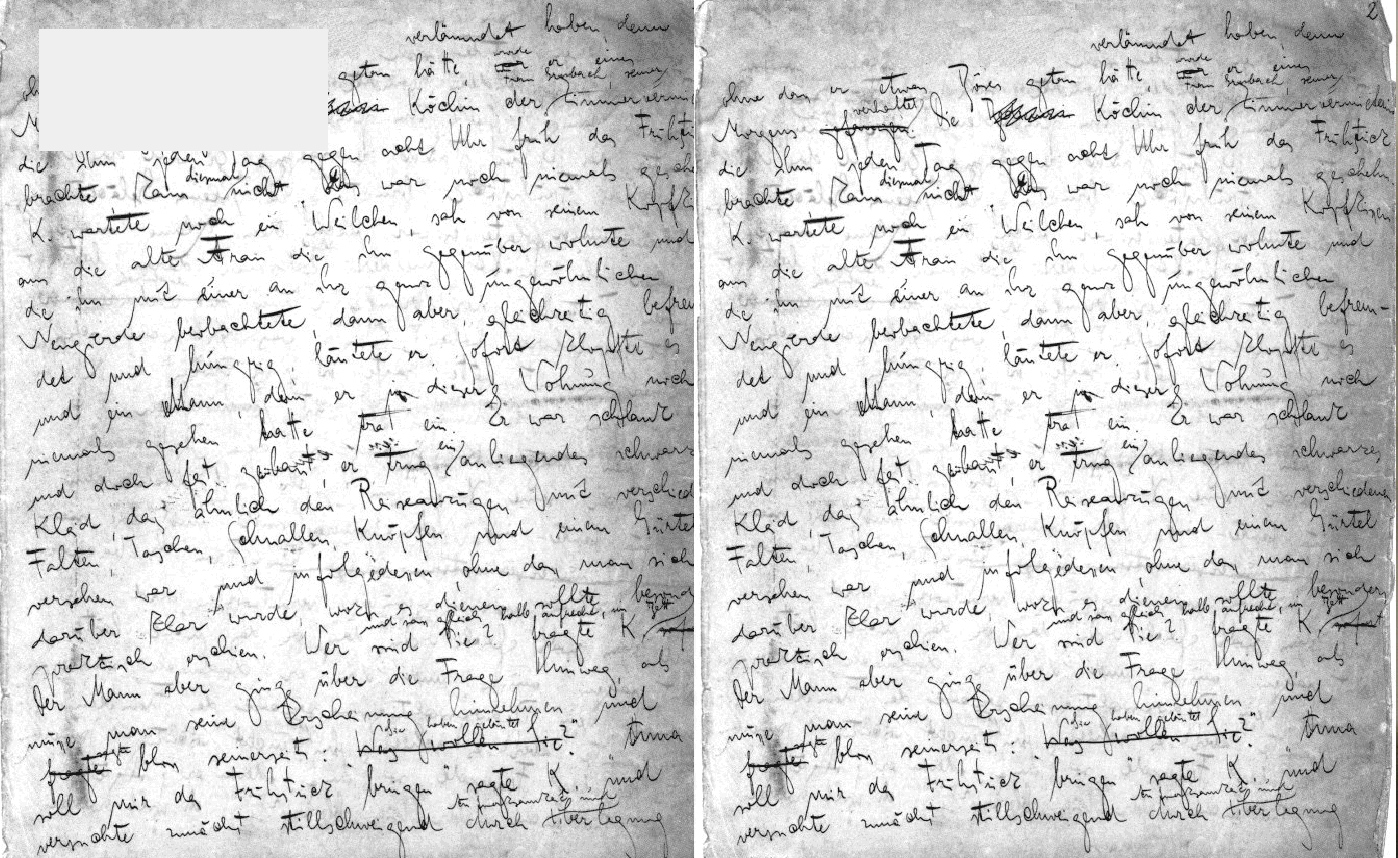 verläumdet haben, denn
getan hätte, wurde er eines
Köchin der Frau Grubach, seiner
die ihm jeden Tag gegen acht Uhr früh das
brachte kam diesmal nicht. Das war noch niemals
K. wartete noch ein Weilchen, sah von seinem
aus die alte Frau die ihm gegenüber wohnte und
die ihn mit einer an ihr ganz ungewöhnlichen
Neugierde beobachtete, dann aber, gleichzeitig befrem
det und hungrig, läutete er. Sofort klopfte es
und ein Mann, den er in dieser Wohnung noch
niemals gesehen hatte trat ein. Er war schlank
und doch fest gebaut, er trug ein anliegendes schwarzes
Kleid, das ähnlich den Reiseanzügen mit
Falten, Taschen, Schnallen, Knöpfen und einem Gürtel
versehen war und infolgedessen, ohne dass man sich
darüber klar wurde, wozu es dienen sollte,
praktisch erschien. Wer sind Sie? fragte K. und sass gleich halb aufrecht im Bett
Der Mann aber ging über die Frage hinweg, als
müsse man seine Erscheinung hinnehmen und
sagte bloss seinerseits: "Sie haben geläutet?" "Anna
soll mir das Frühstück bringen" sagte K. und
versuchte zunächst stillschweigend durch Aufmerksamkeit und Überlegung
2
verläumdet haben, denn
ohne dass er etwas Böses getan hätte, wurde er eines
Morgens verhaftet. Die Köchin der Frau Grubach, seiner Zimmervermieterin
die ihm jeden Tag gegen acht Uhr früh das Frühstück
brachte kam diesmal nicht. Das war noch niemals geschehn
K. wartete noch ein Weilchen, sah von seinem Kopfkissen
aus die alte Frau die ihm gegenüber wohnte und
die ihn mit einer an ihr ganz ungewöhnlichen
Neugierde beobachtete, dann aber, gleichzeitig befrem-
det und hungrig, läutete er. Sofort klopfte es
und ein Mann, den er in dieser Wohnung noch
niemals gesehen hatte trat ein. Er war schlank
und doch fest gebaut, er trug ein anliegendes schwarzes
Kleid, das ähnlich den Reiseanzügen mit verschiedenen
Falten, Taschen, Schnallen, Knöpfen und einem Gürtel
versehen war und infolgedessen, ohne dass man sich
darüber klar wurde, wozu es dienen sollte, besonders
praktisch erschien. Wer sind Sie? fragte K. und sass gleich halb aufrecht im Bett
Der Mann aber ging über die Frage hinweg, als
müsse man seine Erscheinung hinnehmen und
sagte bloss seinerseits: "Sie haben geläutet?" "Anna
soll mir das Frühstück bringen" sagte K. und
versuchte zunächst stillschweigend durch Aufmerksamkeit und Überlegung